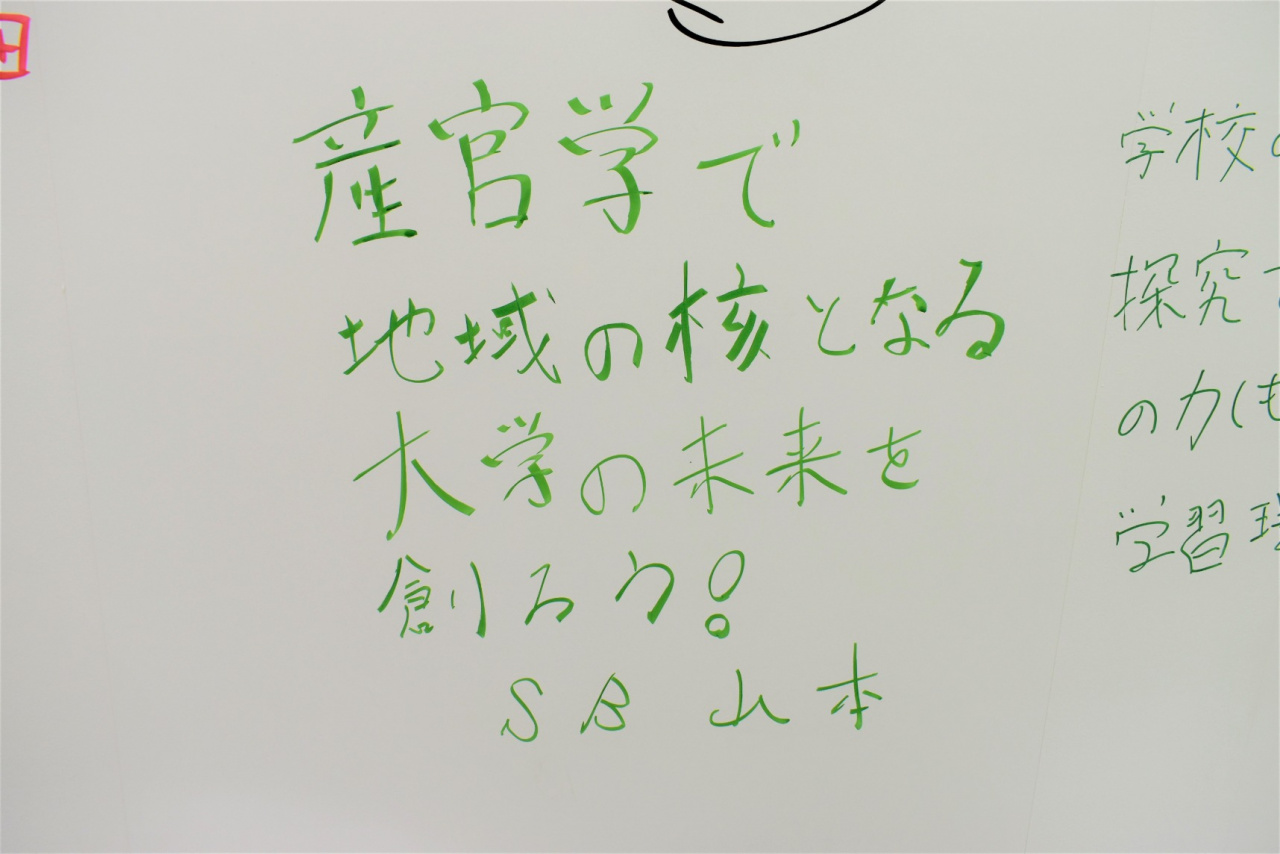 産官学で
地域の核となる
大学の未来を
創ろう!
SB 山本
学校の
探究
の力(も
学習環